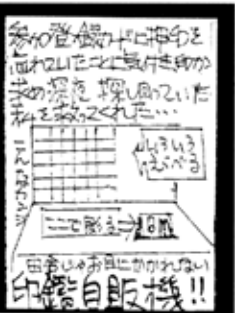 参加登録カードに押印を
忘れていたことに気付き印かん
求め深夜、探し回っていた
私を救ってくれた…
こんなカンジ
いろいろ
えらべる
ここで彫る
田舎じゃお目にかかれない
印鑑自販機!!